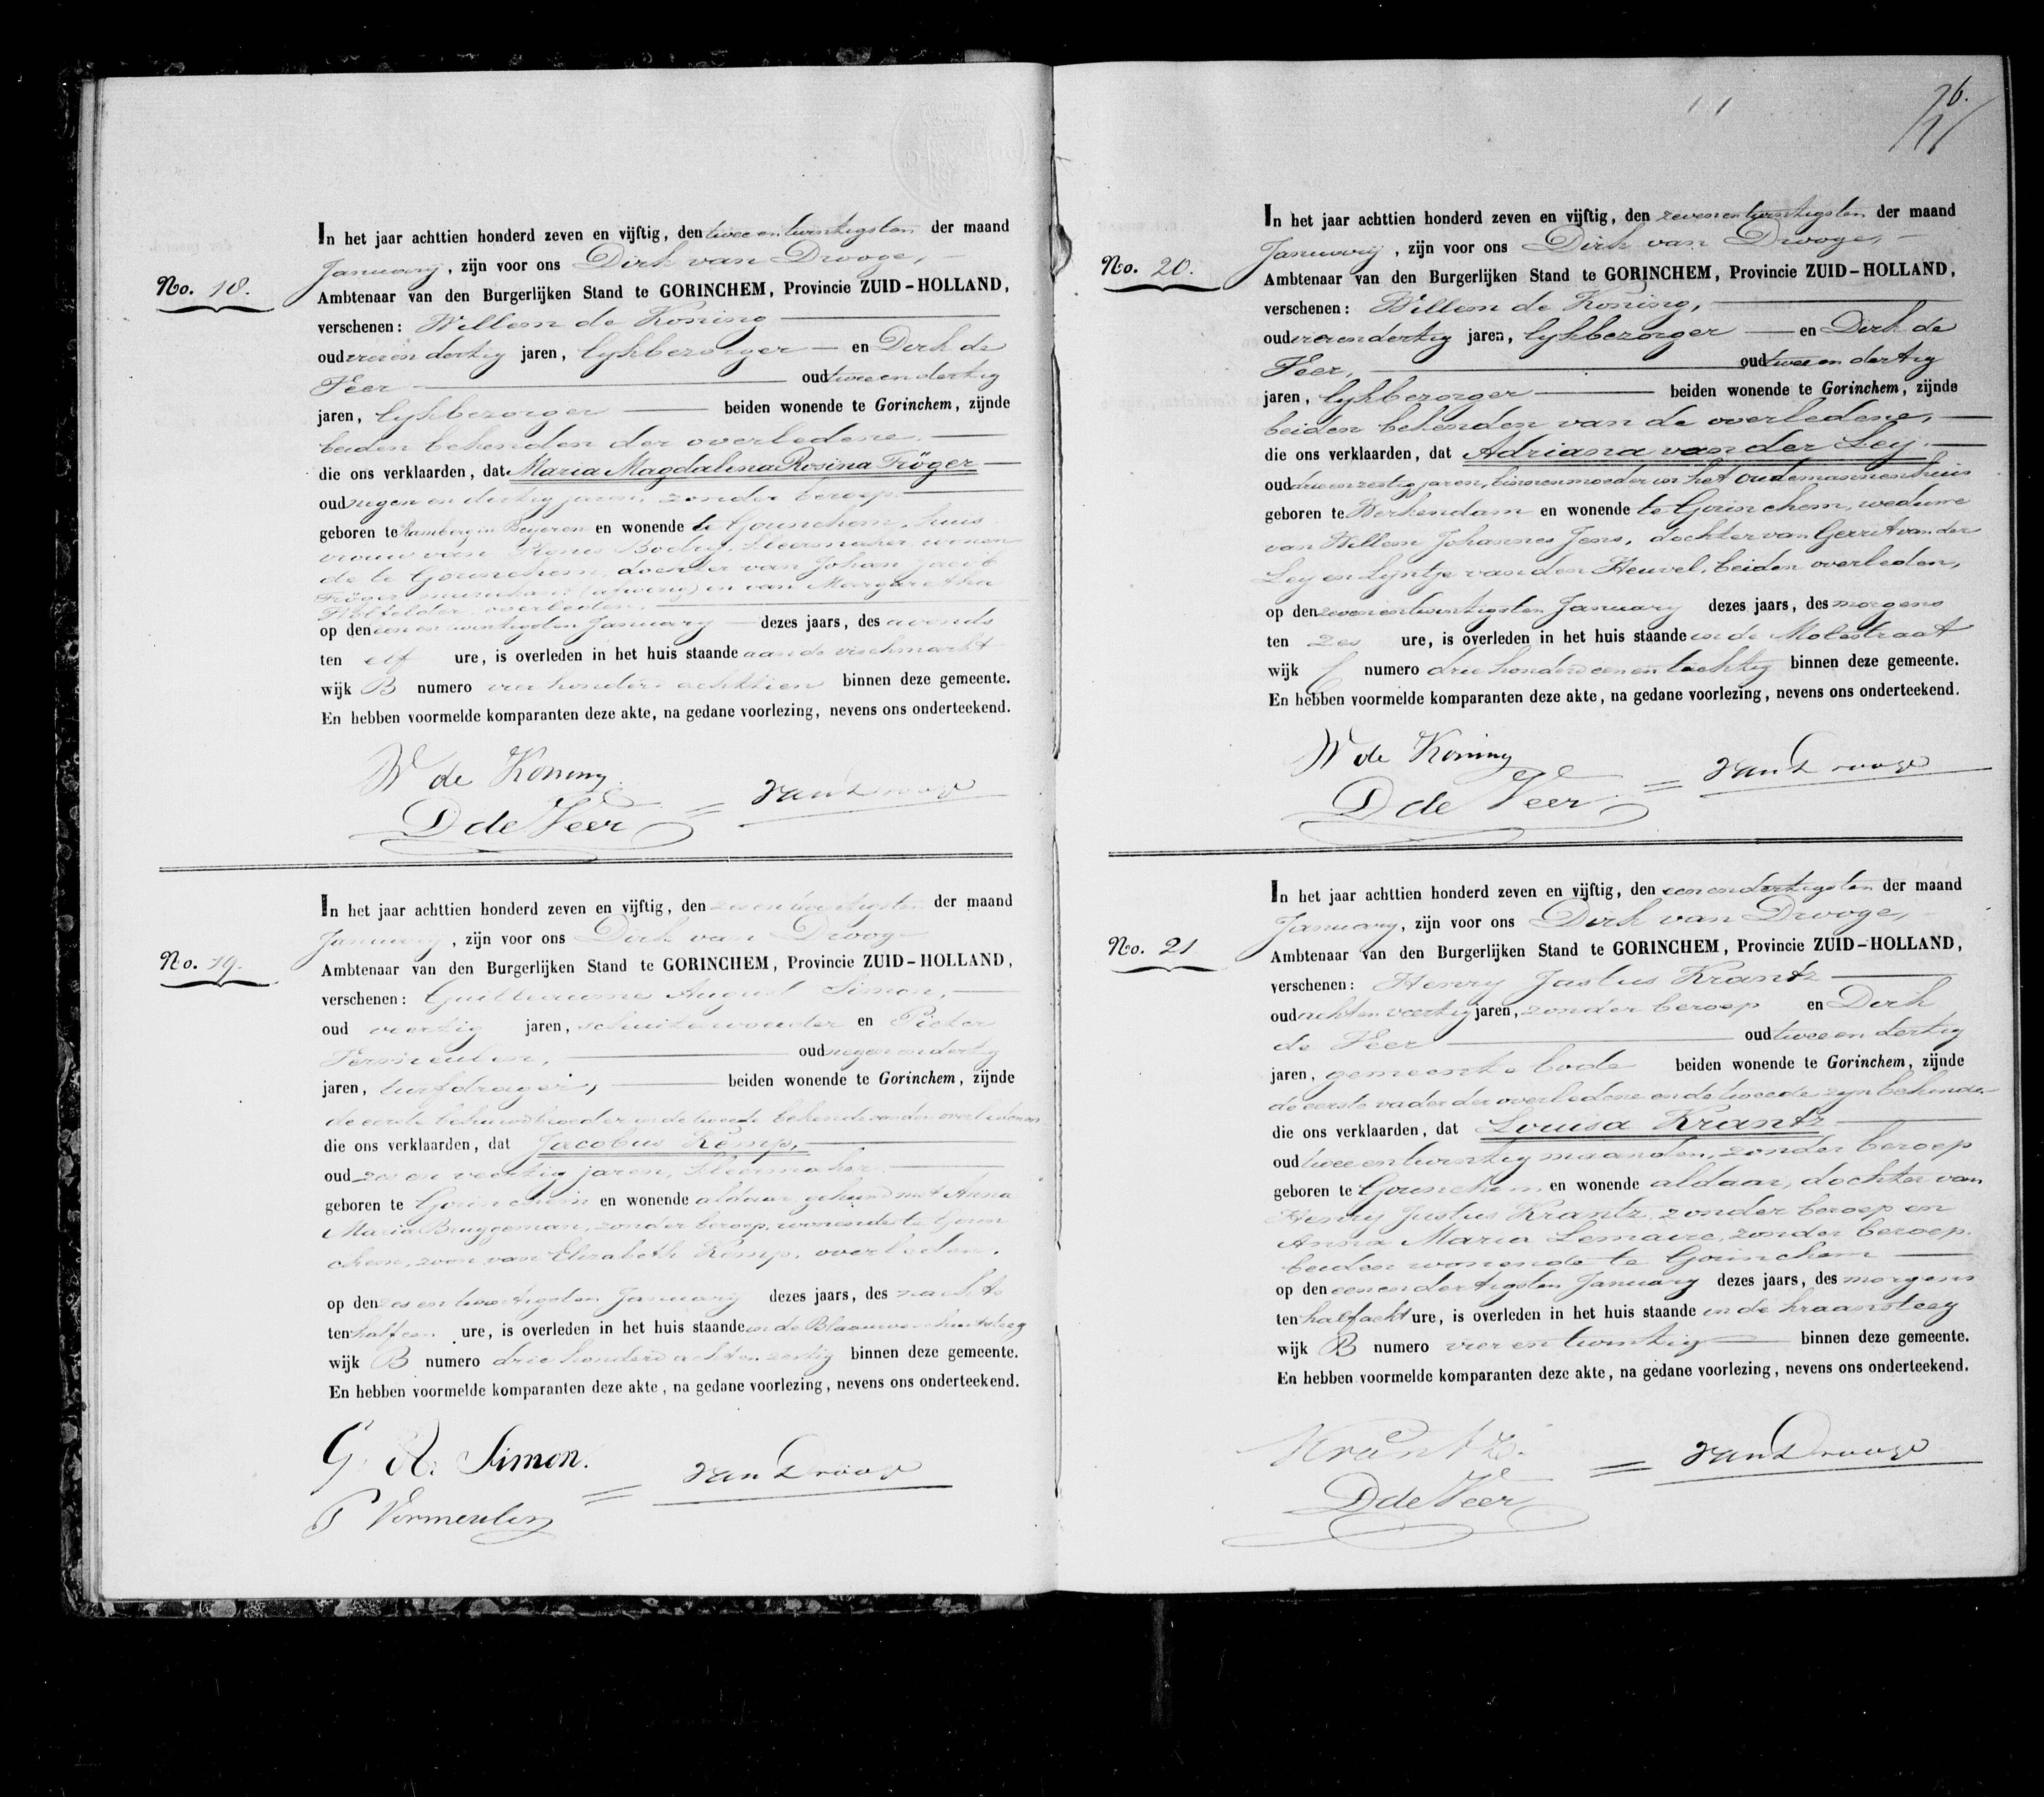 No. 18.
In het jaar achttien honderd zeven en vijftig, den twee en twintigsten der maand
January, zijn voor ons Dirk van Drooge,
Ambtenaar van den Burgerlijken Stand te GORINCHEM, Provincie ZUID-HOLLAND,
verschenen: Willem de Koning
oud vier en dertig jaren, lykbezorger en Dirk de
Veer oud twee en dertig
jaren, lykbezorger beiden wonende te Gorinchem, zijnde
beiden bekenden der overledene.
die ons verklaarden, dat Maria Magdalina Rosina Tröger
oud negen en dertig jaren, zonder beroep.
geboren te Bamberg in Beyeren en wonende te Gorinchem, huis
vrouw van Bodry, kleermaker, wonen
de te Gorinchem, dochter van Johan Jacob
Tröger muzikant (afwezig) en van Margaretha
overleden,
op den een en twintigsten January dezes jaars, des avonds
ten elf ure, is overleden in het huis staande aan de vischmarkt
wijk B numero vier honderd achttien binnen deze gemeente.
En hebben voormelde komparanten deze akte, na gedane voorlezing, nevens ons onderteekend.
W de Koning
D de Veer = van Drooge
No. 19.
In het jaar achttien honderd zeven en vijftig, den zes en twintigsten der maand
January, zijn voor ons Dirk van Drooge
Ambtenaar van den Burgerlijken Stand te GORINCHEM, Provincie ZUID-HOLLAND,
verschenen: Guillaume August Simon,
oud veertig jaren, schuitevoerder en Pieter
Vermeulen, oud negen en dertig
jaren, turfdrager, beiden wonende te Gorinchem, zijnde
de eerste behuwdbroeder en de tweede bekende van den overledenen
die ons verklaarden, dat Jacobus Kemp,
oud zes en veertig jaren, kleermaker.
geboren te Gorinchem en wonende aldaar, gehuwd met Anna
Maria Bruggeman, zonder beroep, wonende te Gorin
chem, zoon van Elizabeth Kemp, overleden.
op den zes en twintigsten January dezes jaars, des nachts
ten half een ure, is overleden in het huis staande in de Blaauwe
wijk B numero drie honderd acht en zestig binnen deze gemeente.
En hebben voormelde komparanten deze akte, na gedane voorlezing, nevens ons onderteekend.
G. A. Simon.
P Vermeulen = van Drooge
6.
No. 20.
In het jaar achttien honderd zeven en vijftig, den zeven en twintigsten der maand
January, zijn voor ons Dirk van Drooge,
Ambtenaar van den Burgerlijken Stand te GORINCHEM, Provincie ZUID-HOLLAND,
verschenen: Willem de Koning,
oud vier en dertig jaren, lykbezorger en Dirk de
Veer, oud twee en dertig
jaren, lykbezorger beiden wonende te Gorinchem, zijnde
beiden bekenden van de overledene,
die ons verklaarden, dat Adriana van der Ley.
oud drie en zestig jaren, binnenmoeder in het oudemannenhuis
geboren te Werkendam en wonende te Gorinchem, weduwe
van Willem Johannes Jens, dochter van Gerrit van der
Ley en Lyntje van den Heuvel, beiden overleden,
op den zeven en twintigsten January dezes jaars, des morgens
ten zes ure, is overleden in het huis staande in de Molestraat
wijk C numero drie honderd een en tachtig binnen deze gemeente.
En hebben voormelde komparanten deze akte, na gedane voorlezing, nevens ons onderteekend.
W de Koning
D de Veer = van Drooge
No. 21
In het jaar achttien honderd zeven en vijftig, den een en dertigsten der maand
January, zijn voor ons Dirk van Drooge,
Ambtenaar van den Burgerlijken Stand te GORINCHEM, Provincie ZUID-HOLLAND,
verschenen: Henry Justus Krantz
oud acht en veertig jaren, zonder beroep en Dirk
de Veer oud twee en dertig
jaren, gemeente bode beiden wonende te Gorinchem, zijnde
de eerste vader der overledene en de tweede zyn bekende
die ons verklaarden, dat Louisa Krantz
oud twee en twintig maanden, zonder beroep
geboren te Gorinchem, en wonende aldaar, dochter van
Henry Justus Krantz, zonder beroep en
Anna Maria Lemaire, zonder beroep.
beiden wonende te Gorinchem
op den een en dertigsten January dezes jaars, des morgens
ten half acht ure, is overleden in het huis staande in de kraansteeg
wijk B numero vier en twintig binnen deze gemeente.
En hebben voormelde komparanten deze akte, na gedane voorlezing, nevens ons onderteekend.
Krantz.
D de Veer = van Drooge